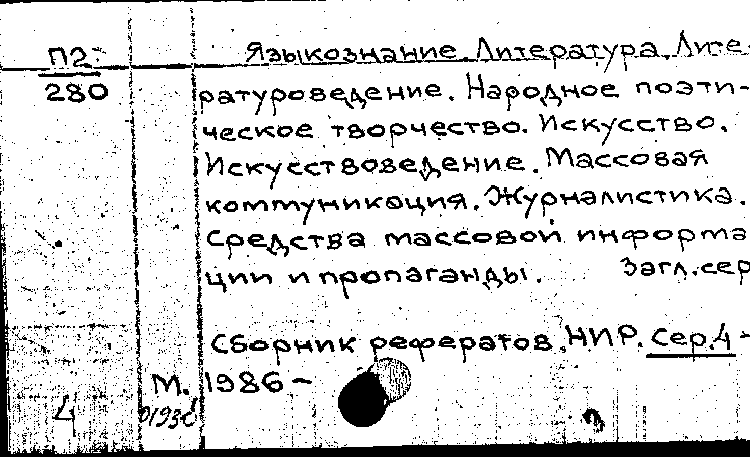 П2- Языкознание. Литература. Лите-
280 ратуроведение. Народное поэти-
ческое творчество. Искусство.
Искусствоведение. Массовая
коммуникация. Журналистика.
Средства массовой информа
ции и пропаганды. Загл.сер
Сборник рефератов. НИР. Сер.4 -
М. 1986 –